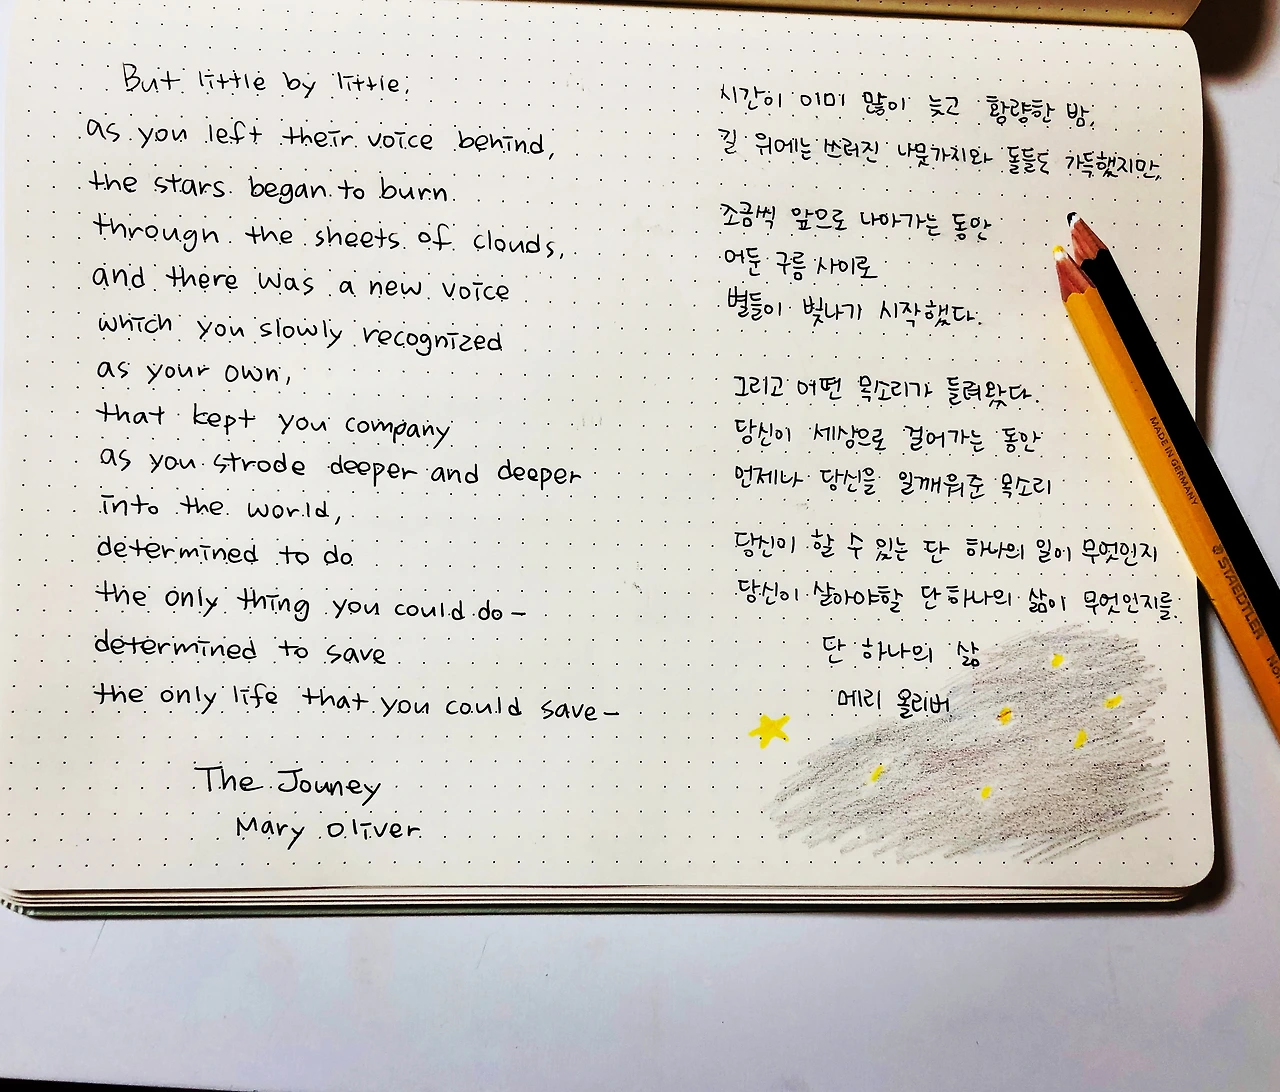 But little by little,
as you left their voice behind,
the stars began to burn
through the sheets of clouds,
and there was a new voice
which you slowly recognized
as your own,
that kept you company
as you strode deeper and deeper
into the world,
determined to do
the only thing you could do-
determined to save
the only life that you could save-
The Jouney
Mary Oliver
시간이 이미 많이 늦고 황량한 밤,
길 위에는 쓰러진 나뭇가지와 돌들도 가득했지만,
조금씩 앞으로 나아가는 동안
어둔 구름 사이로
별들이 빛나기 시작했다.
그리고 어떤 목소리가 들려왔다.
당신이 세상으로 걸어가는 동안
언제나 당신을 일깨워준 목소리
당신이 할 수 있는 단 하나의 일이 무엇인지
당신이 살아야할 단 하나의 삶이 무엇인지를.
단 하나의 삶
메리 올리버
MADE IN GERMANY
STAEDTLER